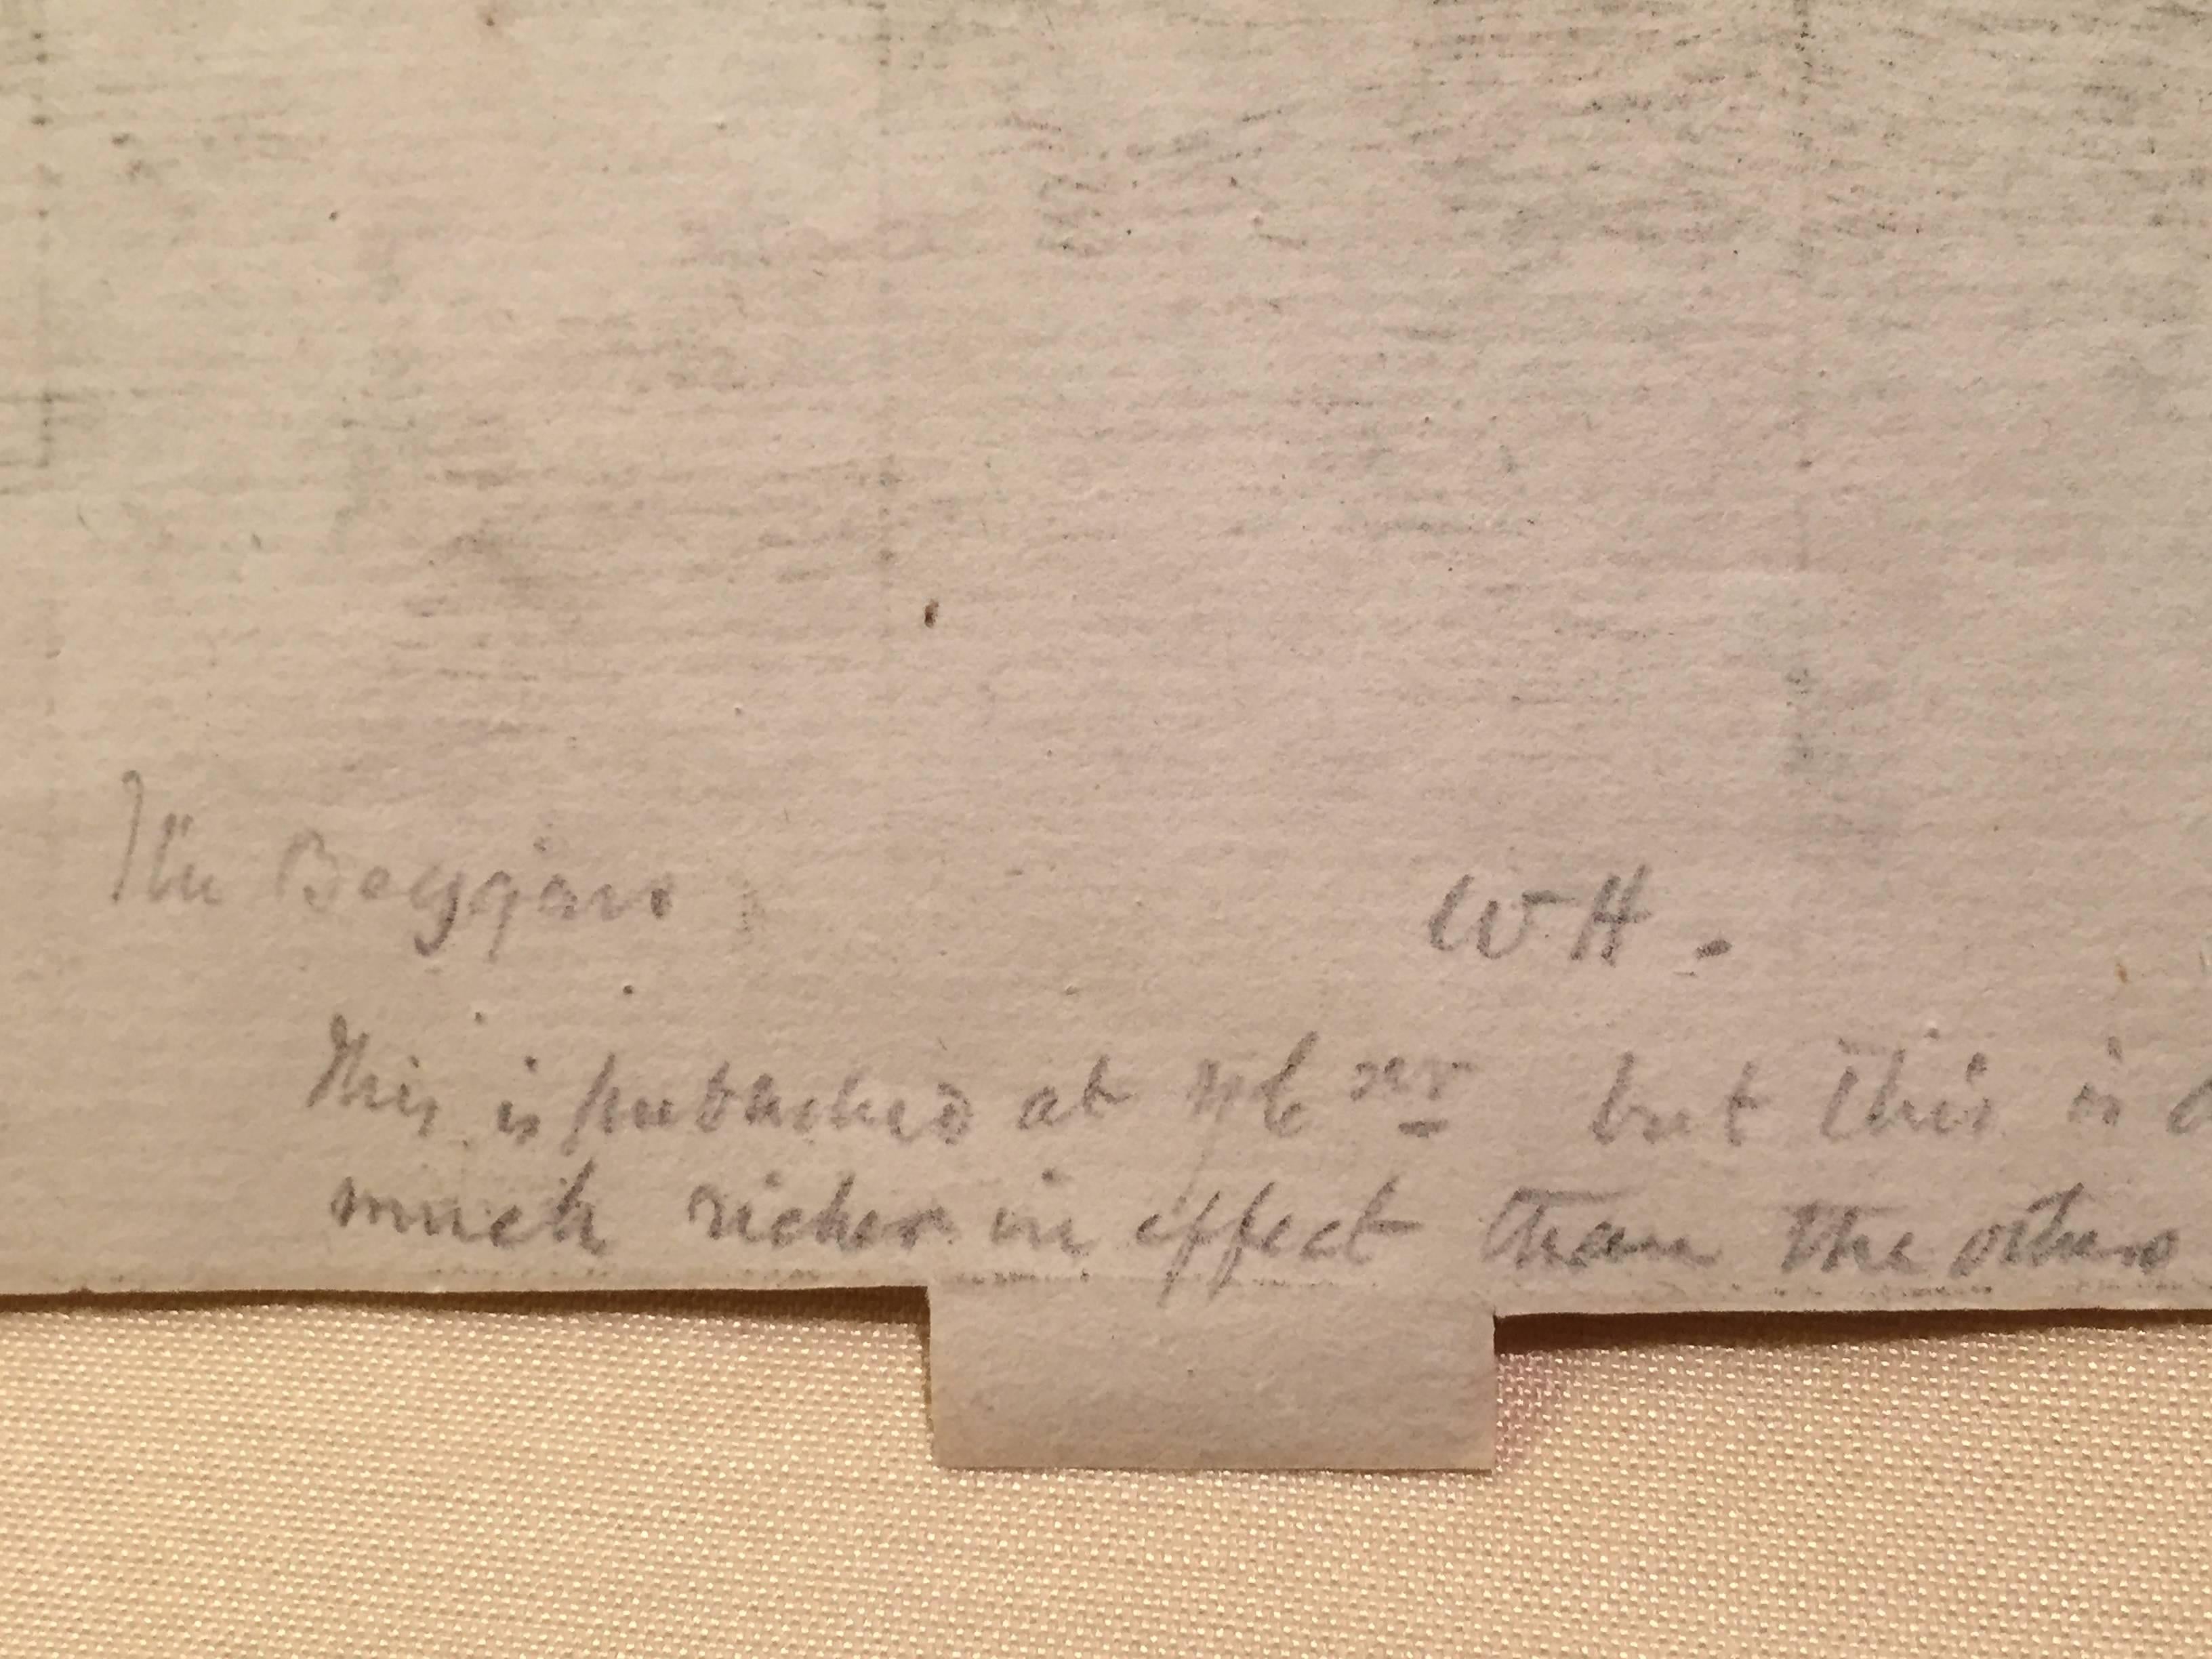 The Beggars WH.
This is published at but this is
much richer in effect than the others